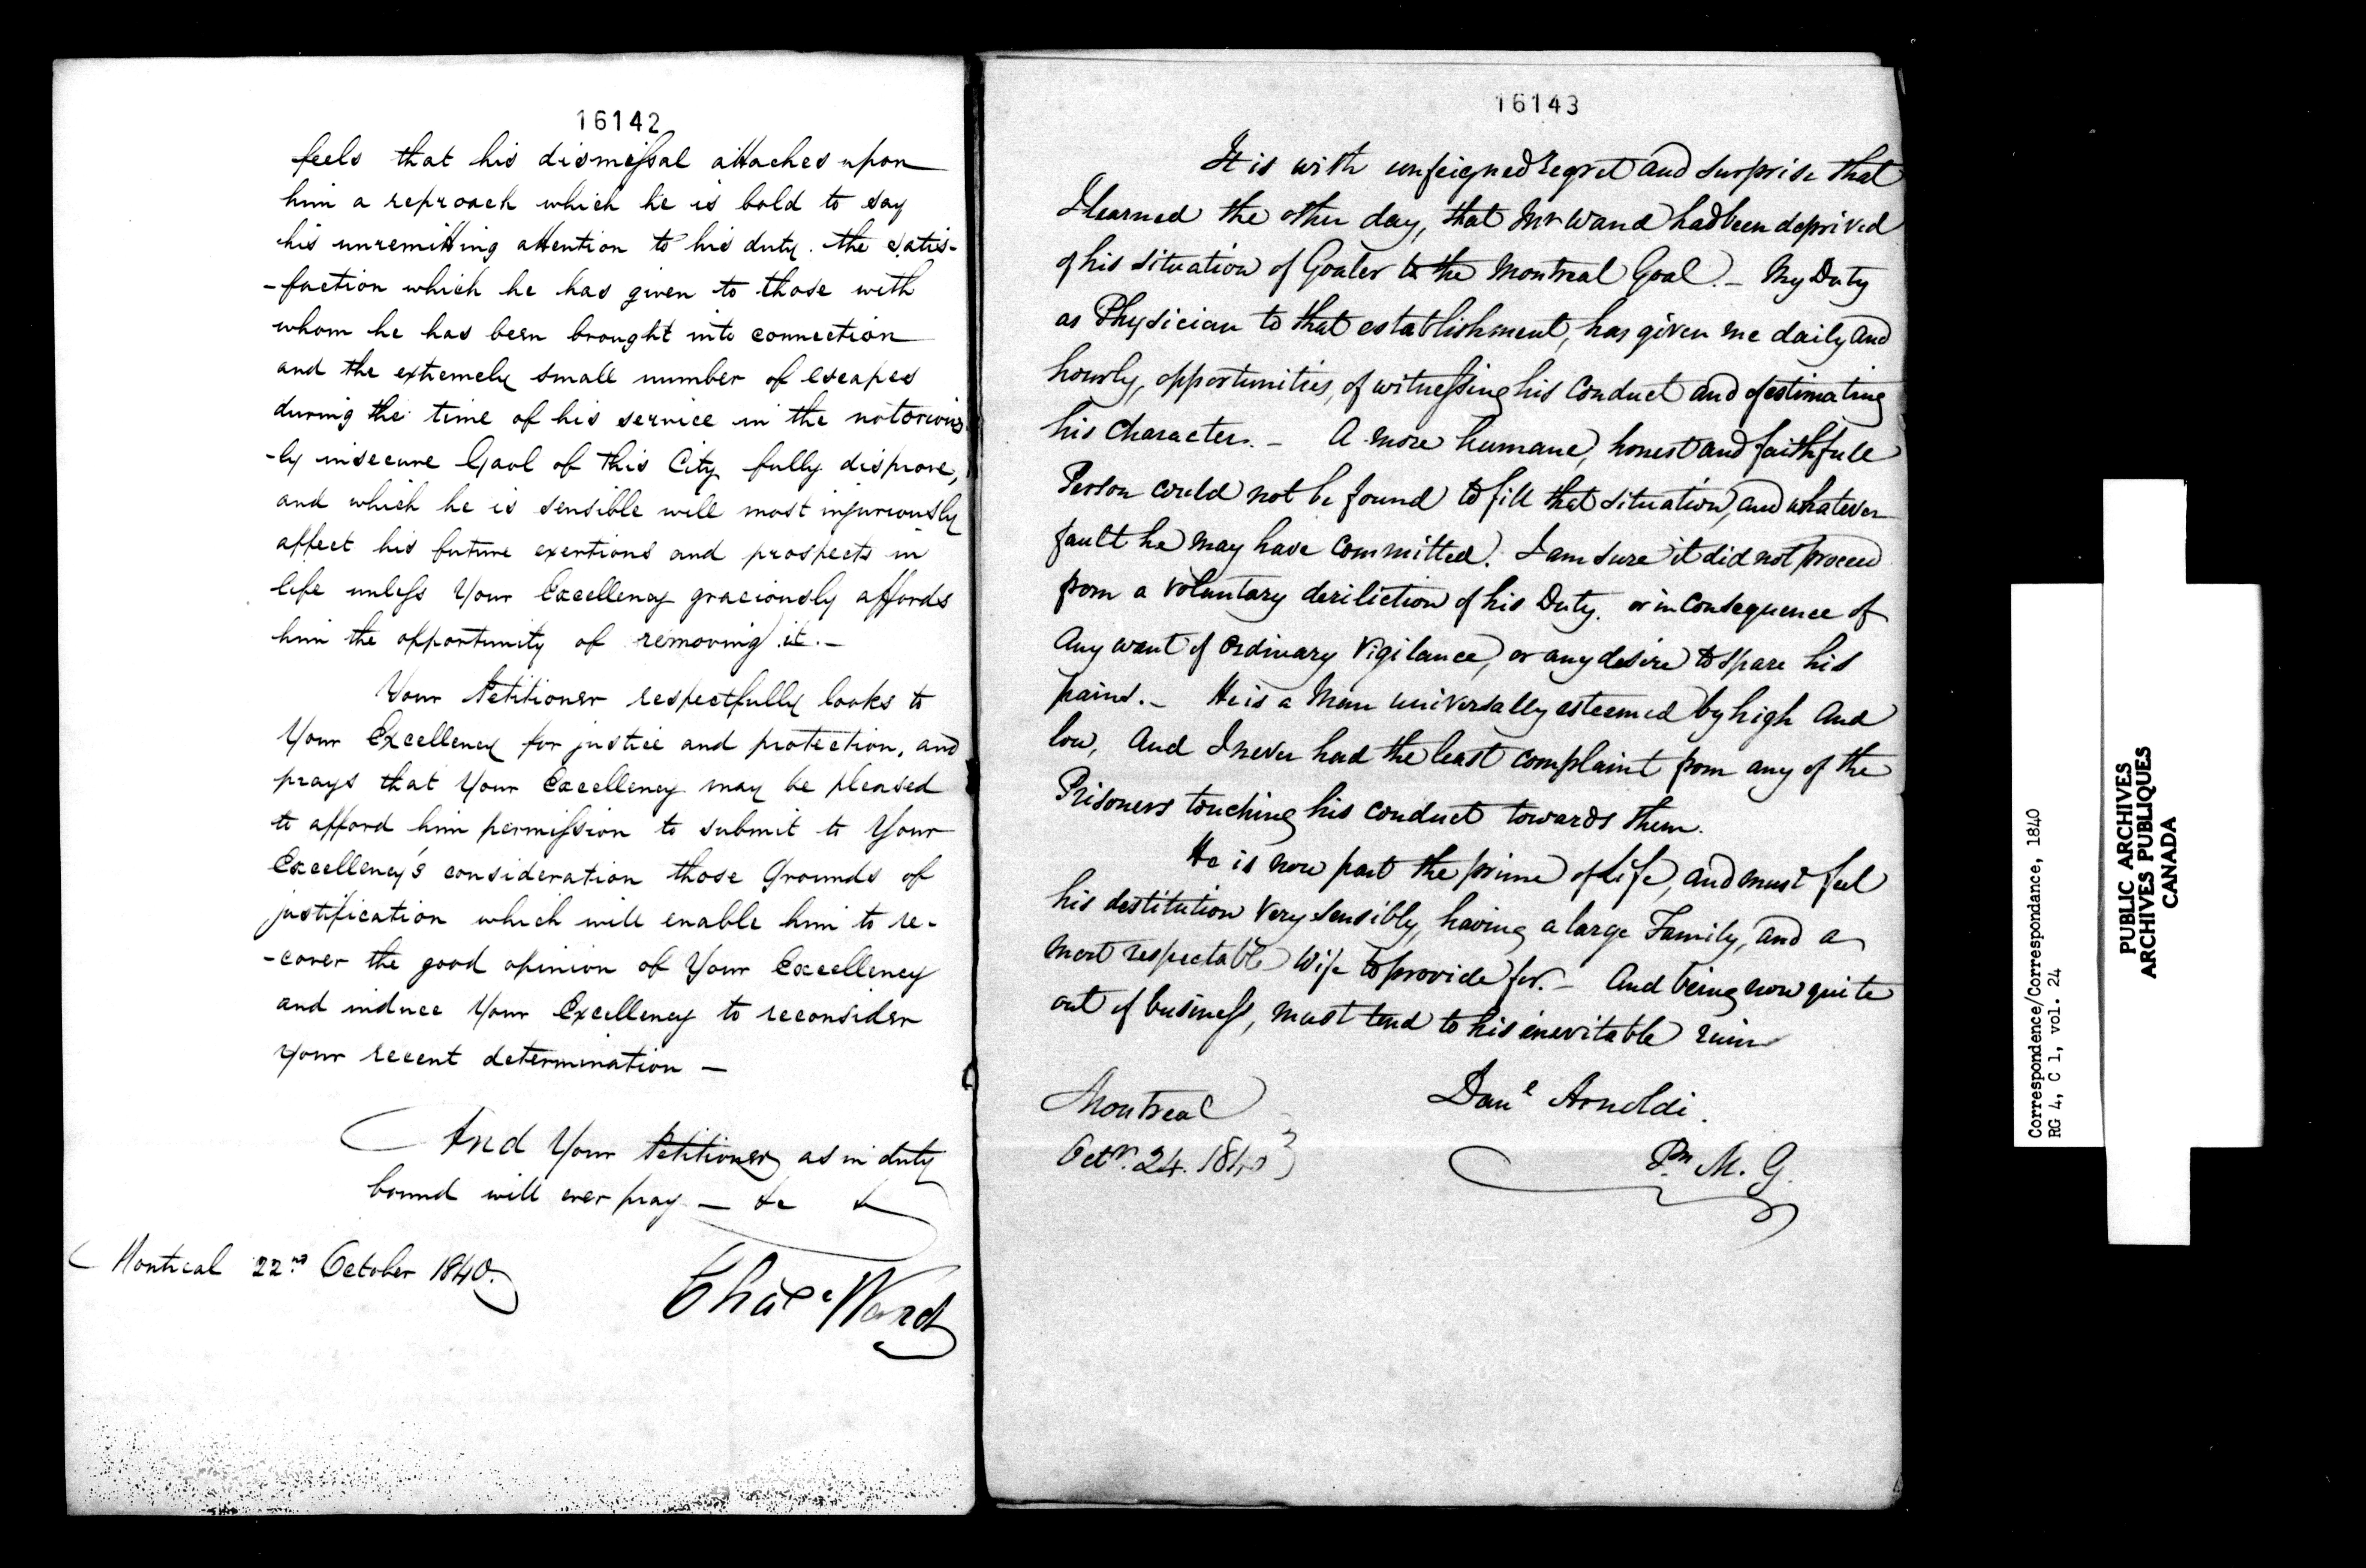 16142
feels that his dismissal attaches upon
him a reproach which he is bold to say
his unremitting attention to his duty. the satis-
-faction which he has given to those with
whom he has been brought into connection
and the extremely small number of escapes
during the time of his service in the notorious
-ly insecure Gaol of this City fully disprove,
and which he is sensible will most injuriously
affect his future exertions and prospects in
life unless Your Excellency graciously affords
him the opportunity of removing it.-
Your Petitioner respectfully looks to
Your Excellency for justice and protection, and
prays that Your Excellency may be pleased
to afford him permission to submit to Your
Excellency's consideration those Grounds of
justification which will enable him to re-
-cover the good opinion of Your Excellency
and induce Your Excellency to reconsider
Your recent determination —
And Your Petitioner as in duty
bound will ever pray — &c &
Montreal 22nd October 1840.
Chas Wand
16143
It is with unfeigned regret and surprise that
I learned the other day, that Mr Wand had been deprived
of his situation of Goaler to the Montreal Goal. - My Duty
as Physician to that establishment, has given me daily and
hourly, opportunities, of witnessing his Conduct and of estimating
his Character. - A more humane, honest and faithfull
Person could not be found to fill that situation, and whatever
fault he may have committed. I am sure it did not proceed
from a voluntary deriliction of his Duty. or in consequence of
Any want of ordinary Vigilance, or any desire to spare his
pains. - He is a Man universally esteemed by high And
low, And I never had the least complaint from any of the
Prisoners touching his conduct towards them.
He is now past the prime of Life, and must feel
his destitution very sensibly, having a large Family, and a
most respectable Wife to provide for. - And being now quite
out of business, must tend to his inevitable ruin
Montreal
Octr. 24. 1840
Danl Arnoldi.
Pn M. G.
Correspondence/Correspondance, 1840
RG 4, C 1, vol. 24
PUBLIC ARCHIVES
ARCHIVES PUBLIQUES
CANADA